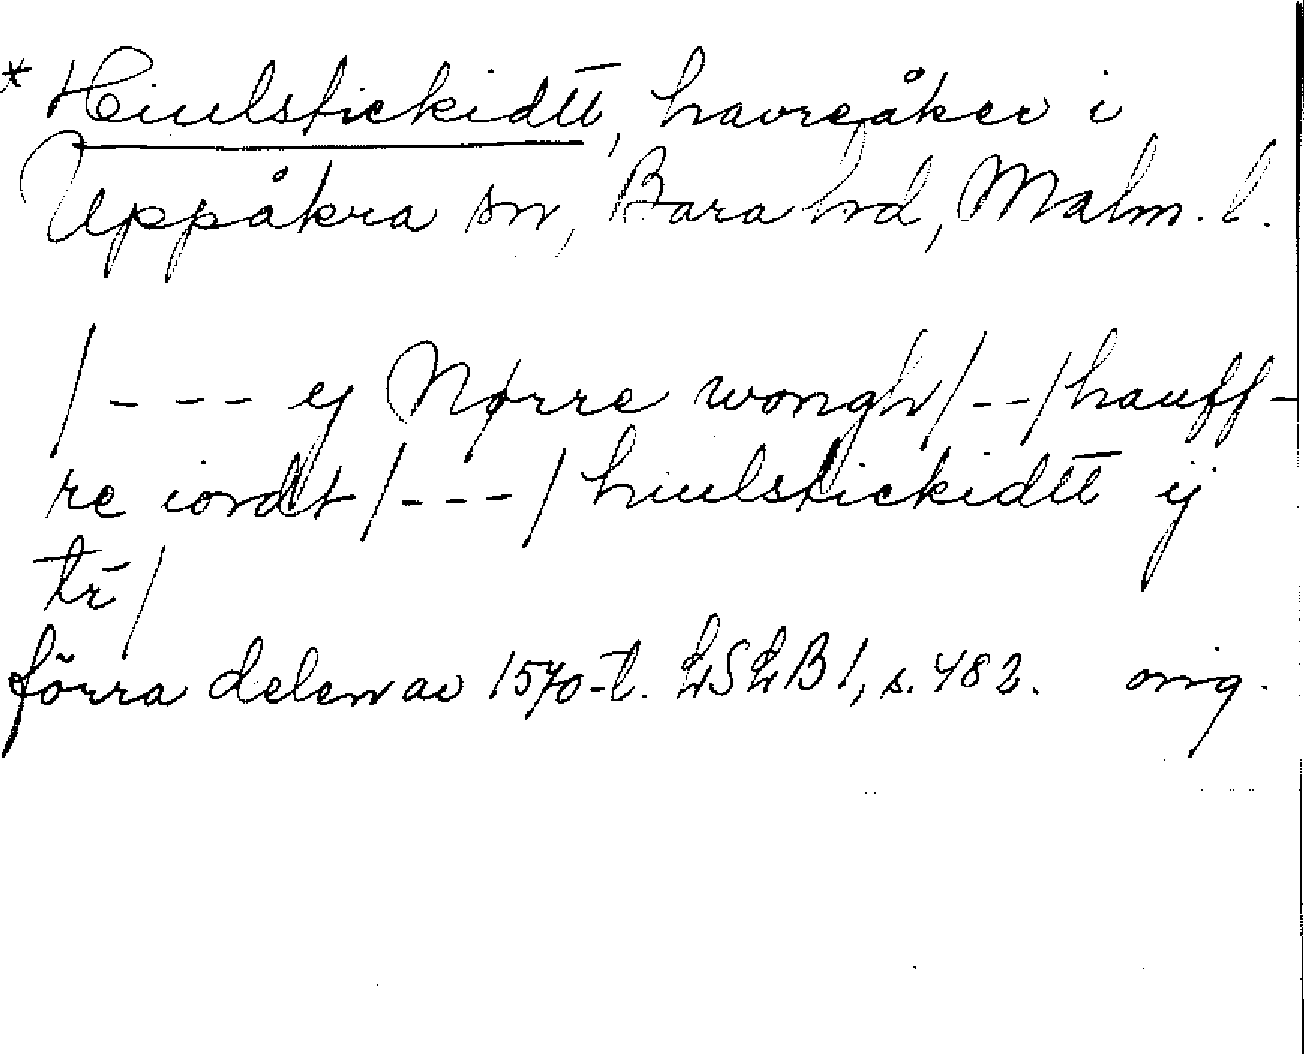 * Hiulstickidtt, havreåker i
Uppåkra sn, Bara hd, Malm. l.
/--- ej Nørre wongh/--/hauff-
re iordt/---/hiulstickidtt ij
tr̄/
förra delen av 1570-t. LSLB 1, s. 482. orig.